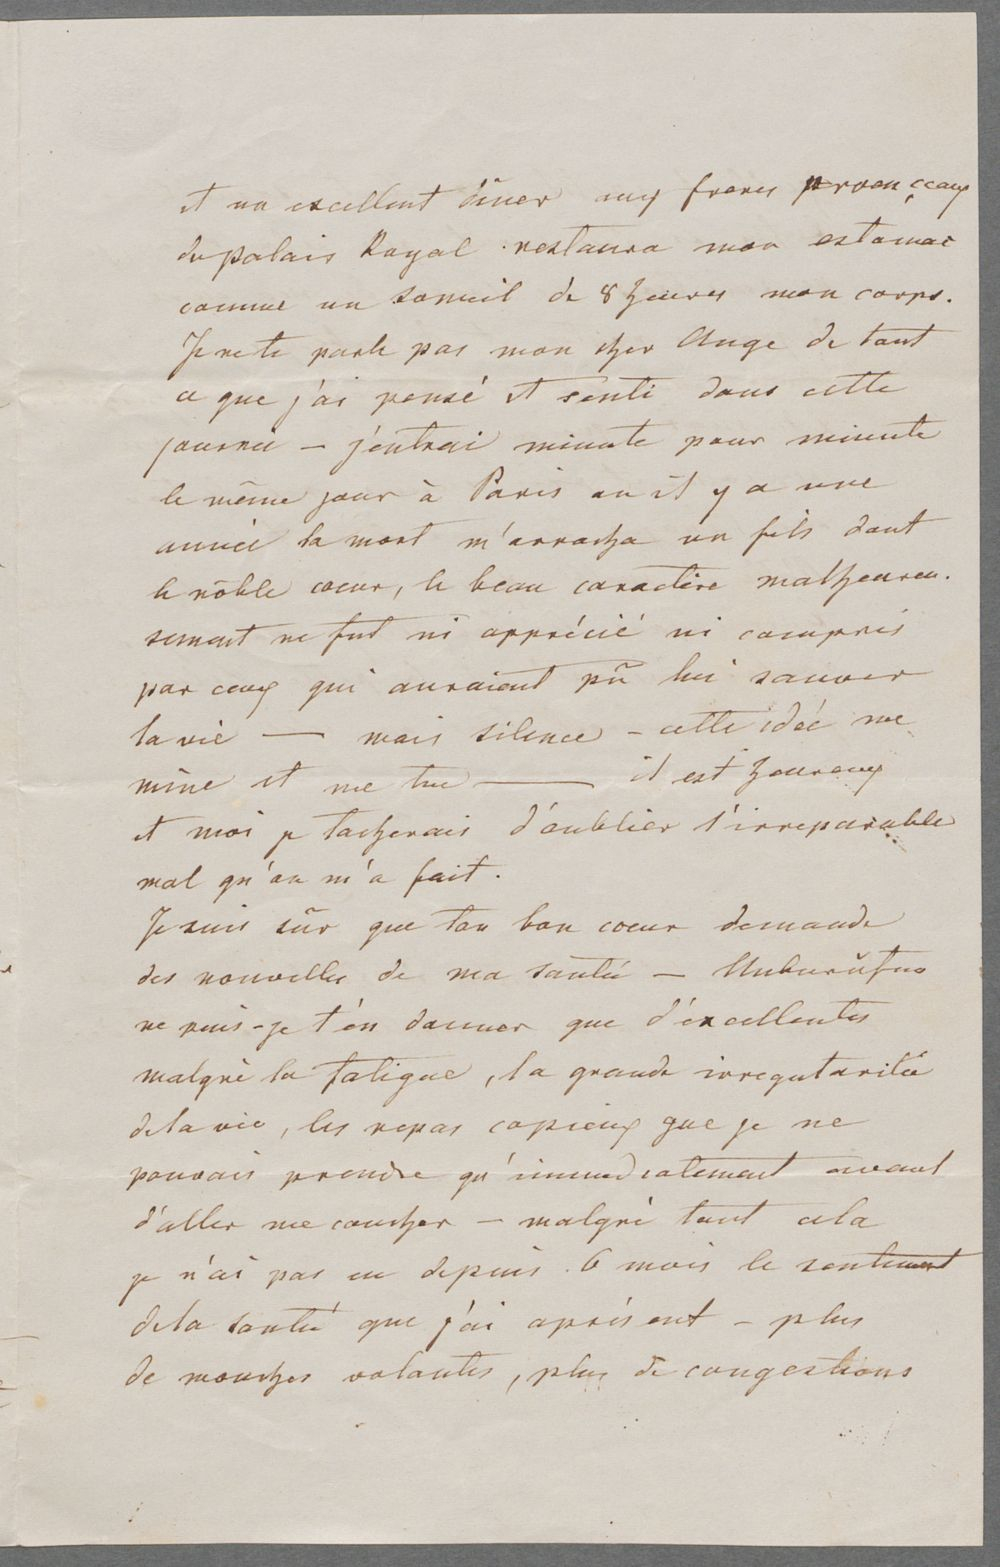 et un excellent dîner aux freres provençeaux
du palais Royal restaura mon estomac
comme un someil de 8 heures mon corps.
Je ne te parle pas mon cher Ange de tout
ce que j'ai pensé et senti dans cette
journée — j'entrai minute pour minute
le même jour à Paris où il y a une
année la mort m'arracha un fils dont
le nôble coeur, le beau caractère malheureu-
sement ne fut ni apprécié ni compris
par ceux qui auraient pû lui sauver
la vie — mais silence — cette idée me
mine et me tue — il est heureux
et moi je tacherais d'oublier l'irreparable
mal qu'on m'a fait.
Je suis sûr que ton bon coeur demande
des nouvelles de ma santé — Unberŭfen
ne puis-je t'en donner que d'éxcellentes
malgrè la fatigue, la grande irregularitée
de la vie, les repas copieux que je ne
pouvais prendre qu'immediatement avant
d'aller me coucher — malgrè tout cela
je n'ai pas eu depuis 6 mois le sentiment
de la santé que j'ai aprésent — plus
de mouches volantes, plus de congestions